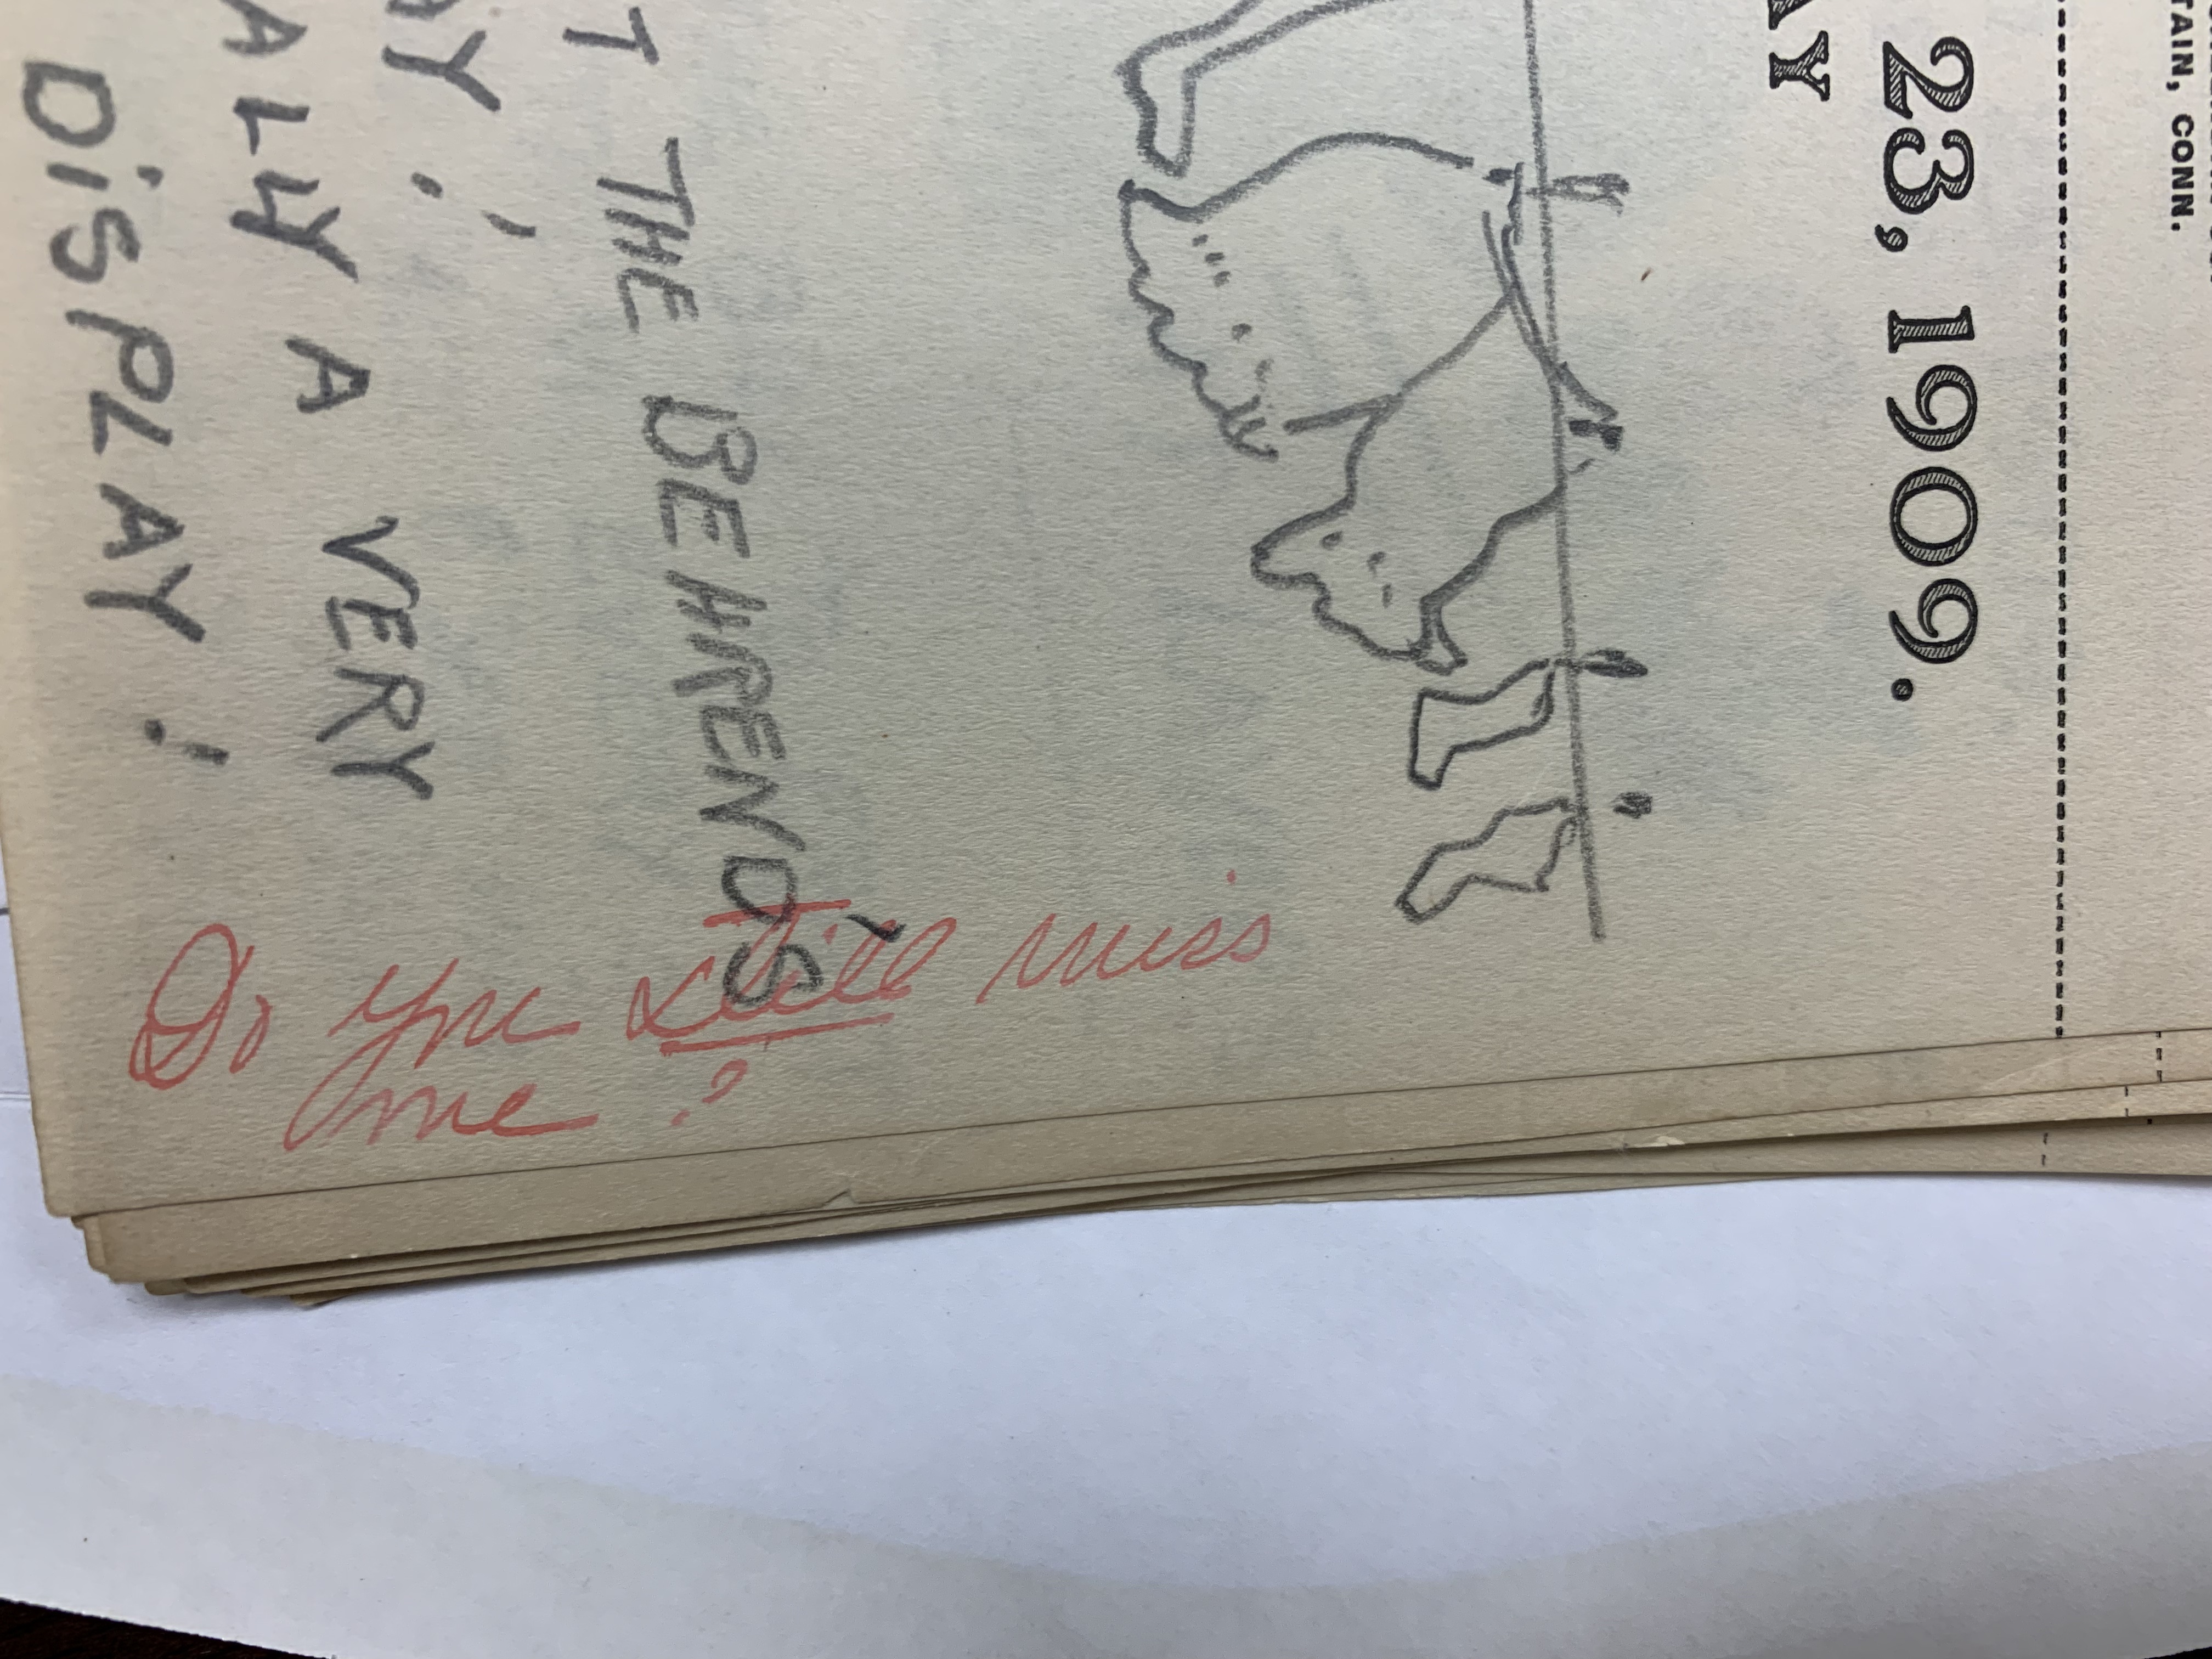 TAIN, CONN.
23, 1909.
AY
T THE BEHREND'S
AY!
ALLY A VERY
DiSPLAY!
Do you still miss
me?